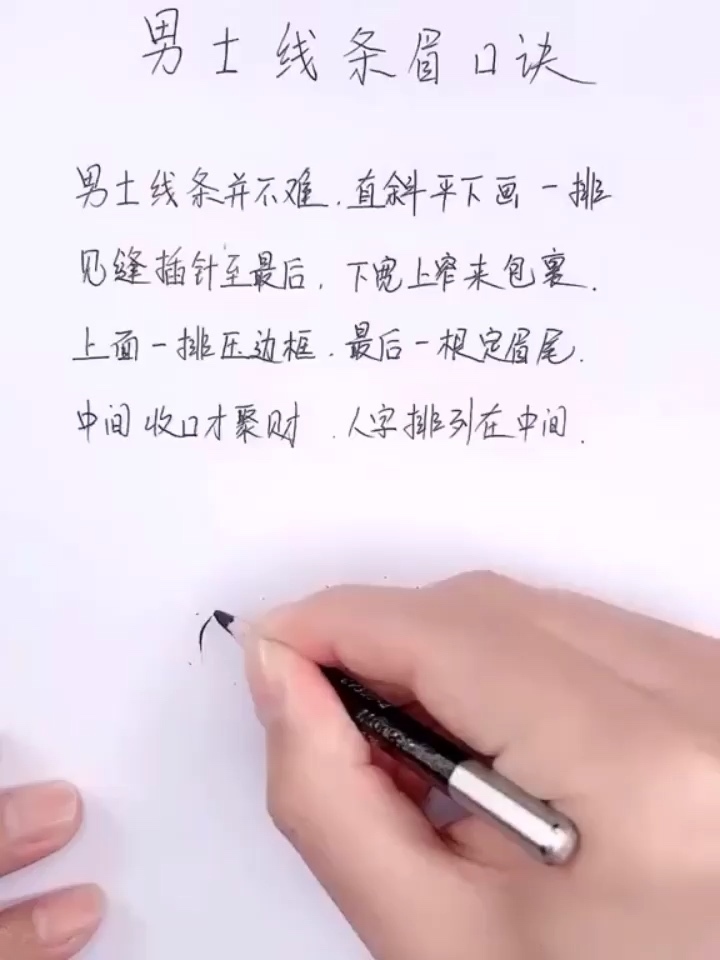 男士线条眉口诀
男士线条并不难.直斜平下画一排
见缝插针至最后.下宽上窄来包裹.
上面一排压边框.最后一根定眉尾.
中间收口才聚财.人字排列在中间.